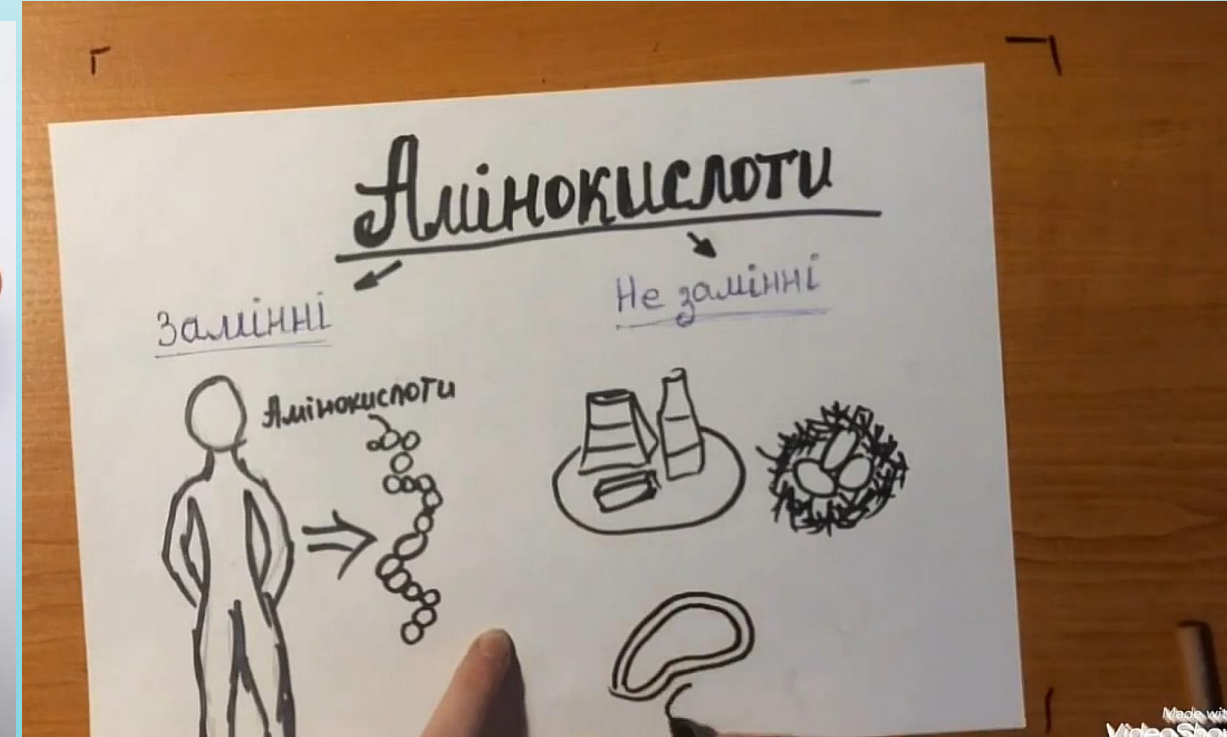 Амінокислоти
Замінні
Не замінні
Амінокислоти
Made wit
VideoSho